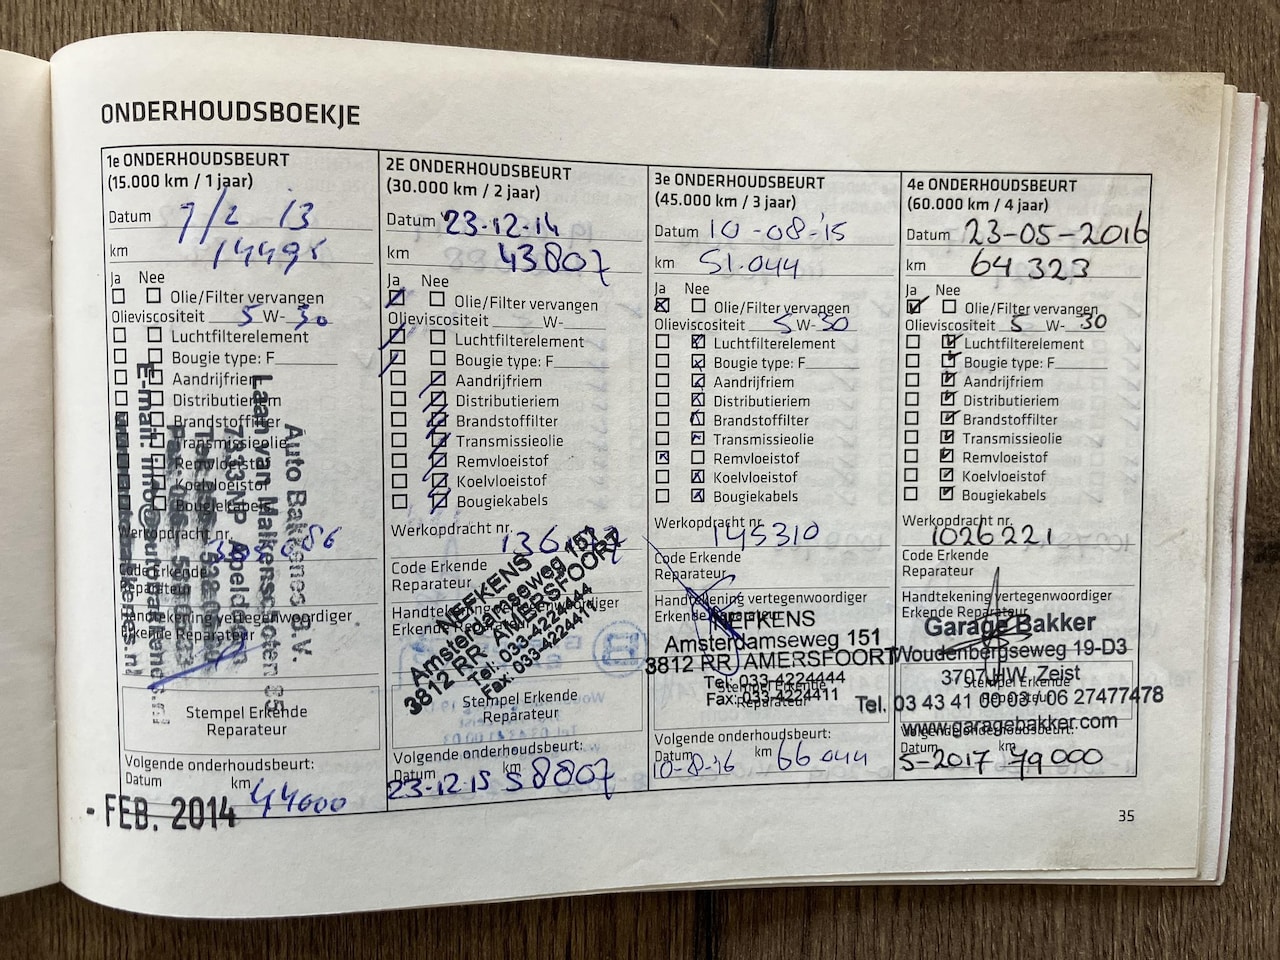 ONDERHOUDSBOEKJE
1e ONDERHOUDSBEURT
(15.000 km / 1 jaar)
Datum 7/2 13
km 14495
Ja Nee
Olie/Filter vervangen
Olieviscositeit 5 W- 30
Luchtfilterelement
Bougie type: F
Aandrijfriem
Distributieriem
Brandstoffilter
Transmissieolie
Remvloeistof
Koelvloeistof
Bougiekabels
Werkopdracht nr.
Code Erkende
Reparateur
Handtekening vertegenwoordiger
Erkende Reparateur
Auto Bakkenes B.V.
Laan van Malkenschoten 85
7333 NP Apeldoorn
Stempel Erkende
Reparateur
Volgende onderhoudsbeurt:
Datum km 44000
- FEB. 2014
2E ONDERHOUDSBEURT
(30.000 km / 2 jaar)
Datum 23-12-14
km 43807
Ja Nee
Olie/Filter vervangen
Olieviscositeit W-
Luchtfilterelement
Bougie type: F
Aandrijfriem
Distributieriem
Brandstoffilter
Transmissieolie
Remvloeistof
Koelvloeistof
Bougiekabels
Werkopdracht nr.
Code Erkende
Reparateur
Handtekening vertegenwoordiger
Erkende Reparateur
NEFKENS
Amsterdamseweg 151
3812 RR AMERSFOORT
Tel: 033-4224444
Fax: 033-4224411
Stempel Erkende
Reparateur
Volgende onderhoudsbeurt:
Datum km
23-12-15 58807
3e ONDERHOUDSBEURT
(45.000 km / 3 jaar)
Datum 10-08-'15
km 51.044
Ja Nee
Olie/Filter vervangen
Olieviscositeit 5 W- 30
Luchtfilterelement
Bougie type: F
Aandrijfriem
Distributieriem
Brandstoffilter
Transmissieolie
Remvloeistof
Koelvloeistof
Bougiekabels
Werkopdracht nr. 145310
Code Erkende
Reparateur
Handtekening vertegenwoordiger
Erkende Reparateur
NEFKENS
Amsterdamseweg 151
3812 RR AMERSFOORT
Tel: 033-4224444
Fax: 033-4224411
Stempel Erkende
Reparateur
Volgende onderhoudsbeurt:
Datum km
10-8-16 66044
4e ONDERHOUDSBEURT
(60.000 km / 4 jaar)
Datum 23-05-2016
km 64323
Ja Nee
Olie/Filter vervangen
Olieviscositeit 5 W- 30
Luchtfilterelement
Bougie type: F
Aandrijfriem
Distributieriem
Brandstoffilter
Transmissieolie
Remvloeistof
Koelvloeistof
Bougiekabels
Werkopdracht nr.
1026221
Code Erkende
Reparateur
Handtekening vertegenwoordiger
Erkende Reparateur
Garage Bakker
Woudenbergseweg 19-D3
3707 HW Zeist
Stempel Erkende
Reparateur
Tel. 03 43 41 00 03 / 06 27477478
www.garagebakker.com
Volgende onderhoudsbeurt:
Datum km
5-2017 79000
35